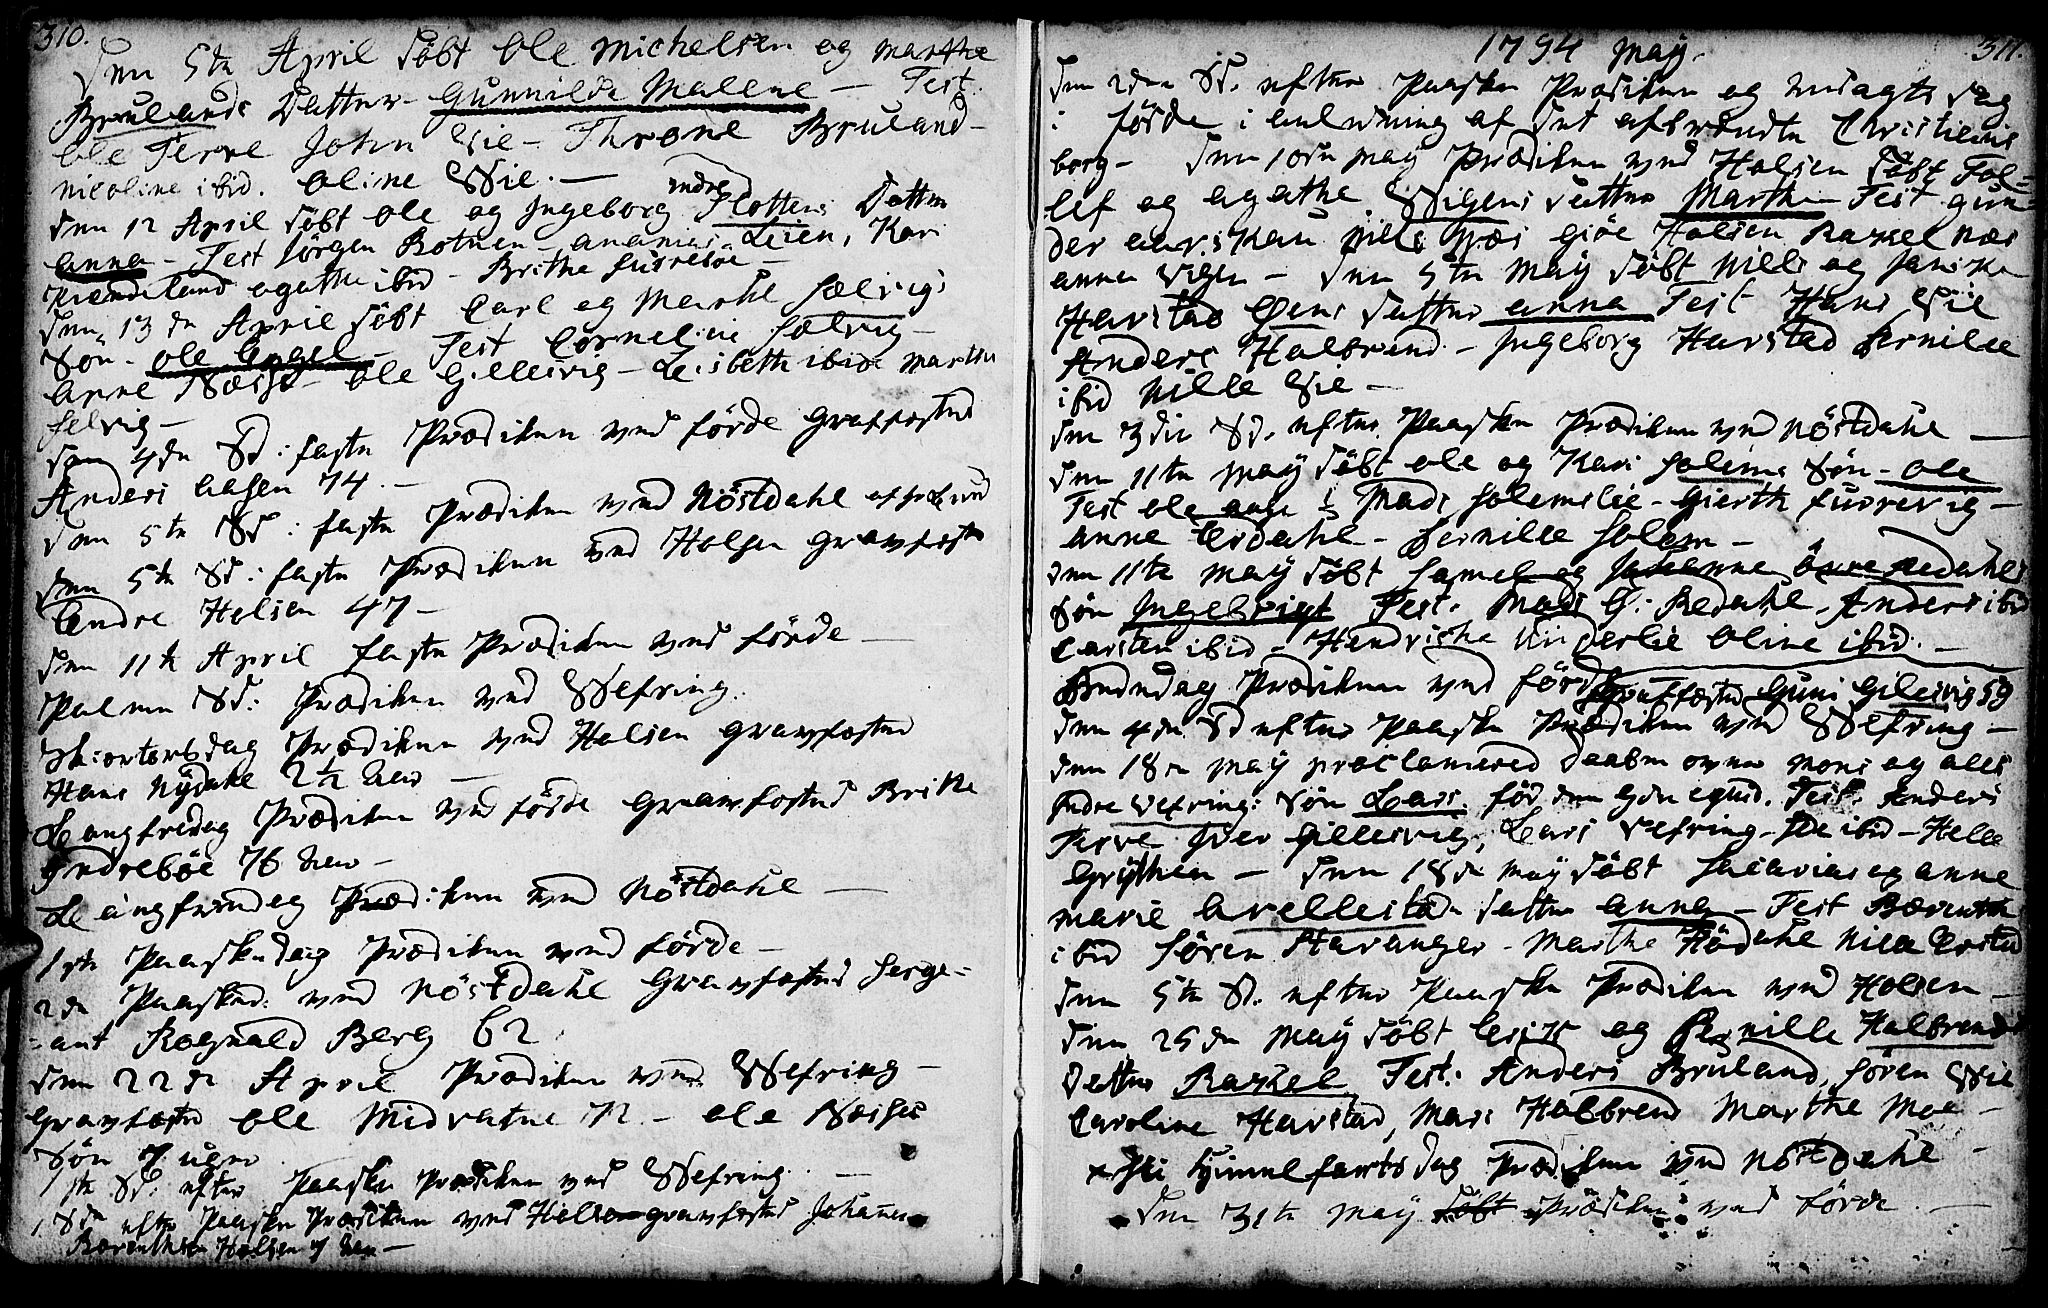 310.
Den 5te April döbt Ole Michelsen og Marthe
Brulands Datter Gunnilda Malene — Test.
Ole Ferre John Wie - Throne Bruland -
Nicoline ibid. Oline Wie. —
Den 12 April döbt Ole og Ingeborg indre Flottens Datter
Anna - Test Jörgen Botnen - Ananias Leien, Kari
agathe ibid - Brithe
Den 13de April döbt Carl og Marthe Sælvigs
Sön - Ole - Test Cornelius Sælvig -
Anne - Ole Gilleivig - Lisbeth ibid Marthe
Selvig -
den 4de Sd: faste Prædiken ved Förde Graffæsted
Anders Aasen 74. -
Den 5te Sd: faste Prædiken ved Nöstdahl
Den 5te Sd: faste Prædiken ved Holsen Gravfæste
Endre Holsen 47 -
Den 11te April faste Prædiken ved Förde —
Palme Sd: Prædiken ved Wefring.
Skiertorsdag Prædiken ved Holsen Gravfæsted
Hans Nÿdahl 2 1/2 aar —
Langfredag Prædiken ved Förde Gravfæsted Brithe
Indreböe 76 aar -
Langfredag Prædiken ved Nöstdahl —
1ste Paaskedag Prædiken ved Förde —
2de Paasked: ved Nöstdahl Gravfæsted Serge=
=ant Rognald Berg 62
Den 22de April Prædiken ved Wefring —
Gravfæsted Ole Midvatne 72 - Ole
Sön 7 uger
1ste Sd: efter Paaske Prædiken ved Wefring —
1 Sd efter Paaske Prædiken ved Holsen gravfæsted Johannes
Berenthsen Holsen 7 aar —
1794 May. 311.
Den 2den Sd. efter Paaske Prædiken og
i Förde i anledning af det afbrændte Christians
borg - Den 10de May Prædiken ved Holsen döbt Tol=
lef og Agathe Wigens datter Marthe - Test Gun=
der Holsen Raxel
Anna Vigen - Den 5te May döbt Nills og
Havstad datter Anna Test Hans Wie
Anders Halbrend - Ingeborg Havstad Pernille
ibid Nille Wie -
Den 3die Sd. efter Paaske Prædiken ved Nöstdahl —
Den 11te May döbt Ole og Kari Solems Sön - Ole
Test Ole Mads Solemslie - Gierth Furrevig -
Anne Erdahl - Pernille Solem -
Den 11te May döbt Samuel og Johanne Övre Redahls
Sön Ingebrigt Test. Mads G. Redahl - Anders ibid
Carsten ibid - Hendriche Underlie Oline ibid. —
Bededag Prædiken ved Förde Graffæsted Guni Gileivig 59
Den 4de Sd efter Paaske Prædiken ved Wefring -
Den 18de May proclamered daaben over Mons og
Indre Vefrings Sön Lars. föd den 9de ejusd. Test. Anders
Ferre Iver Gilleivig, Lars Vefring - Ida ibid - Helle
Grytten — Den 18de May döbt Sacarias og Anne
Marie datter Anna - Test Berenth
ibid Sören Stavanger - Marthe Rödahl
Den 5te Sd. efter Paaske Prædiken ved Holsen —
Den 25de May döbt og Pernille Halbrends
Datter Raxel Test. Anders Bruland, Sören Wie
Caroline Havstad, Mari Halbrend Marthe Moe -
Chri Himmelfartsdag Prædiken ved Nöstdahl -
Den 31te May döbt Prædiken ved Förde. —